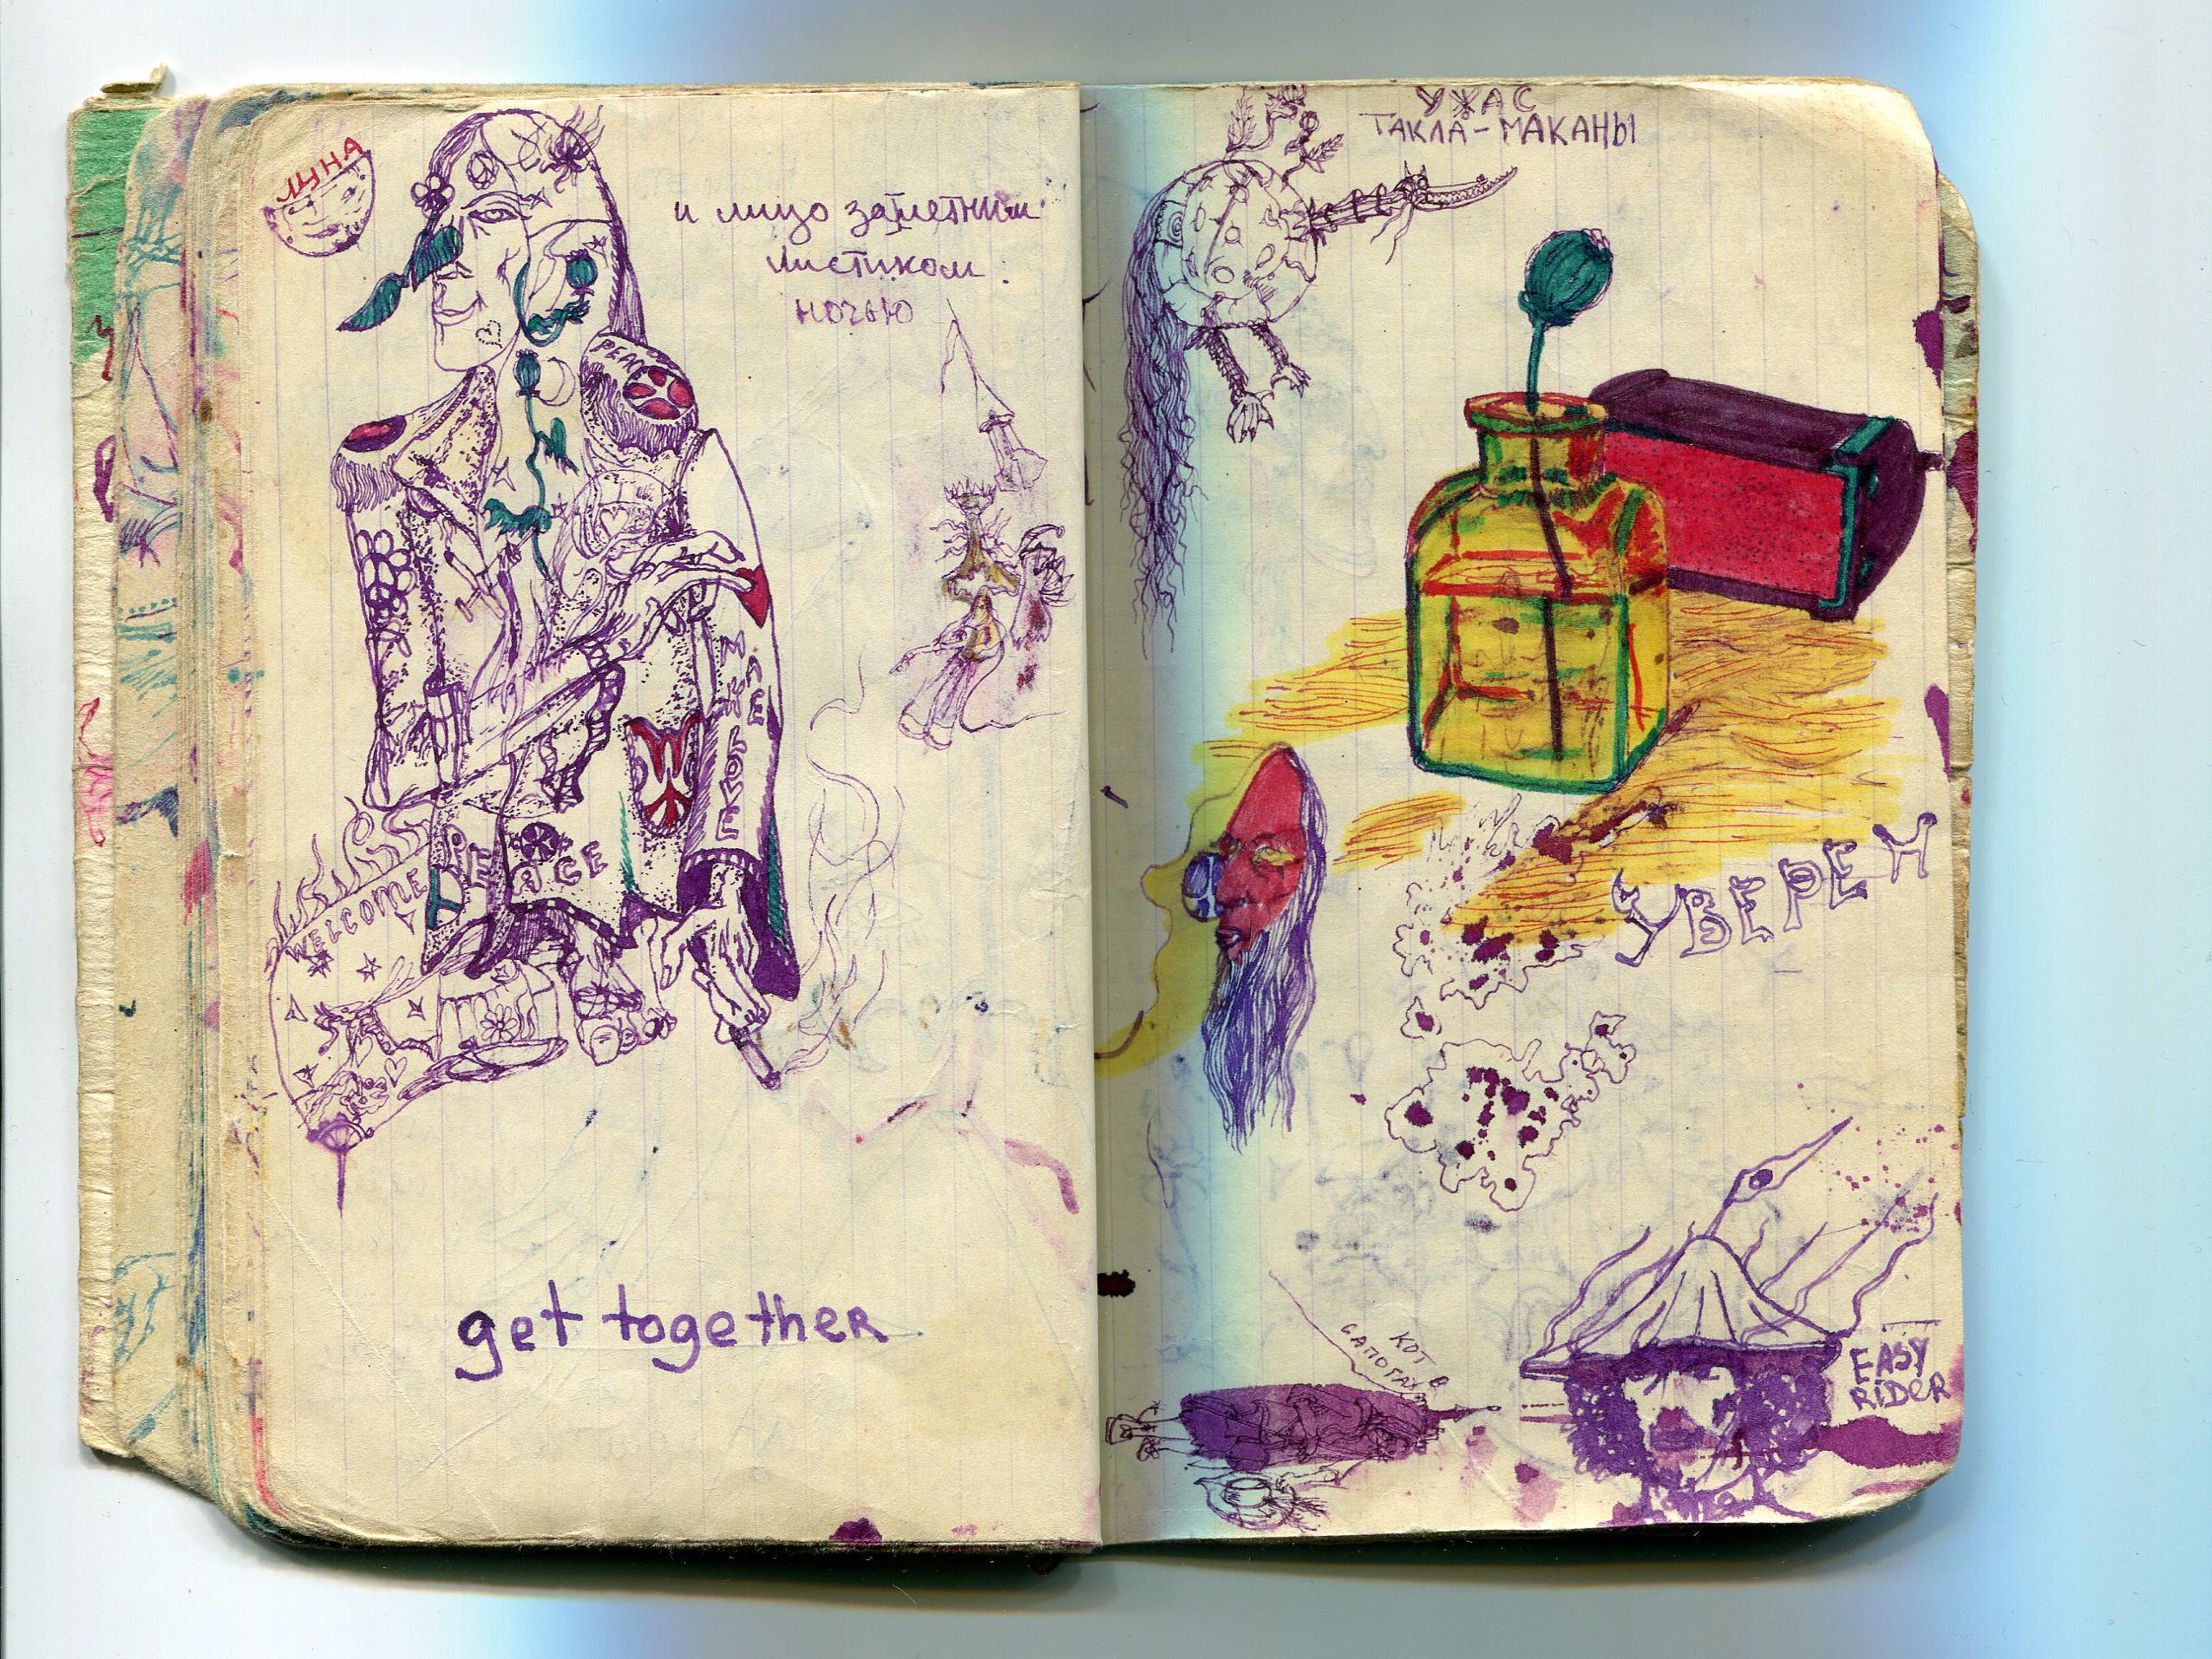 ЛУНА
и лицо заметним
листиком
ночью
PEACE
MAKE LOVE
PEACE
WELCOME
get together
УЖАС
ТАКЛА-МАКАНЫ
УВЕРЕН
КОТ В
САПОГАХ
EASY
RIDER